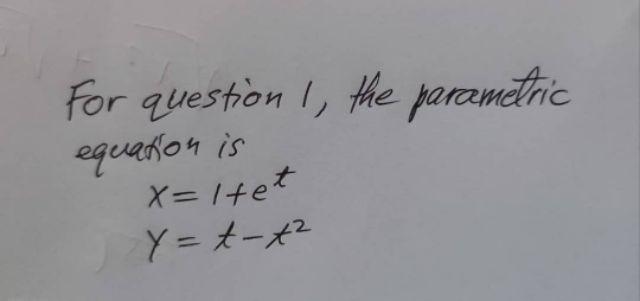 For question 1, the parametric
equation is
x = 1+e^t
y = t-t²